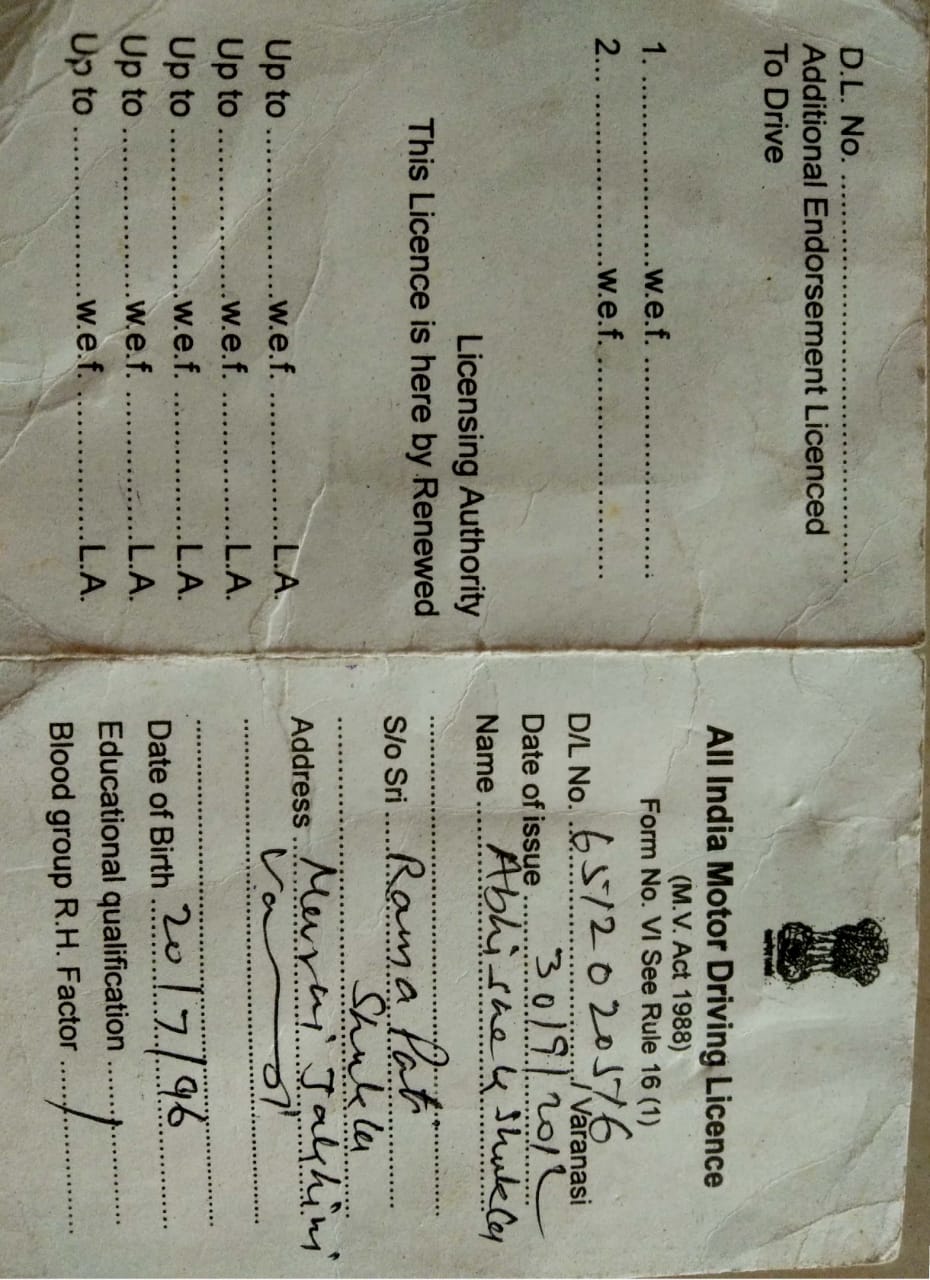 D.L. No. ................................................
Additional Endorsement Licenced
To Drive
1. ......................w.e.f. .........................
2... ....................w.e.f. .........................
Licensing Authority
This Licence is here by Renewed
Up to ...................w.e.f. ................L.A.
Up to ...................w.e.f. ................L.A.
Up to ...................w.e.f. ................L.A.
Up to ...................w.e.f. ................L.A.
Up to ...................w.e.f. ................L.A.
All India Motor Driving Licence
(M.V. Act 1988)
Form No. VI See Rule 16 (1)
D/L No. 6512020516 / Varanasi
Date of issue 30/9/2012
Name Abhishek Shukla
S/o Sri Rama Pati
Shukla
Address
Date of Birth 20/7/96
Educational qualification ..................
Blood group R.H. Factor ..................